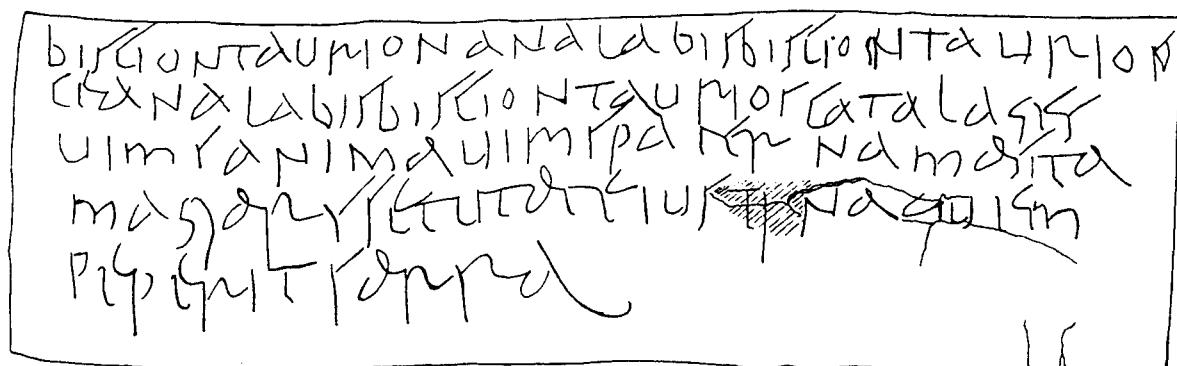 bisgontaurionanalabisbisgontaurion
ceanalabisbisgontaurioscatalages
uimsanimauimspaternamasta
magiarssetutateiustinaquem
peperitsarra